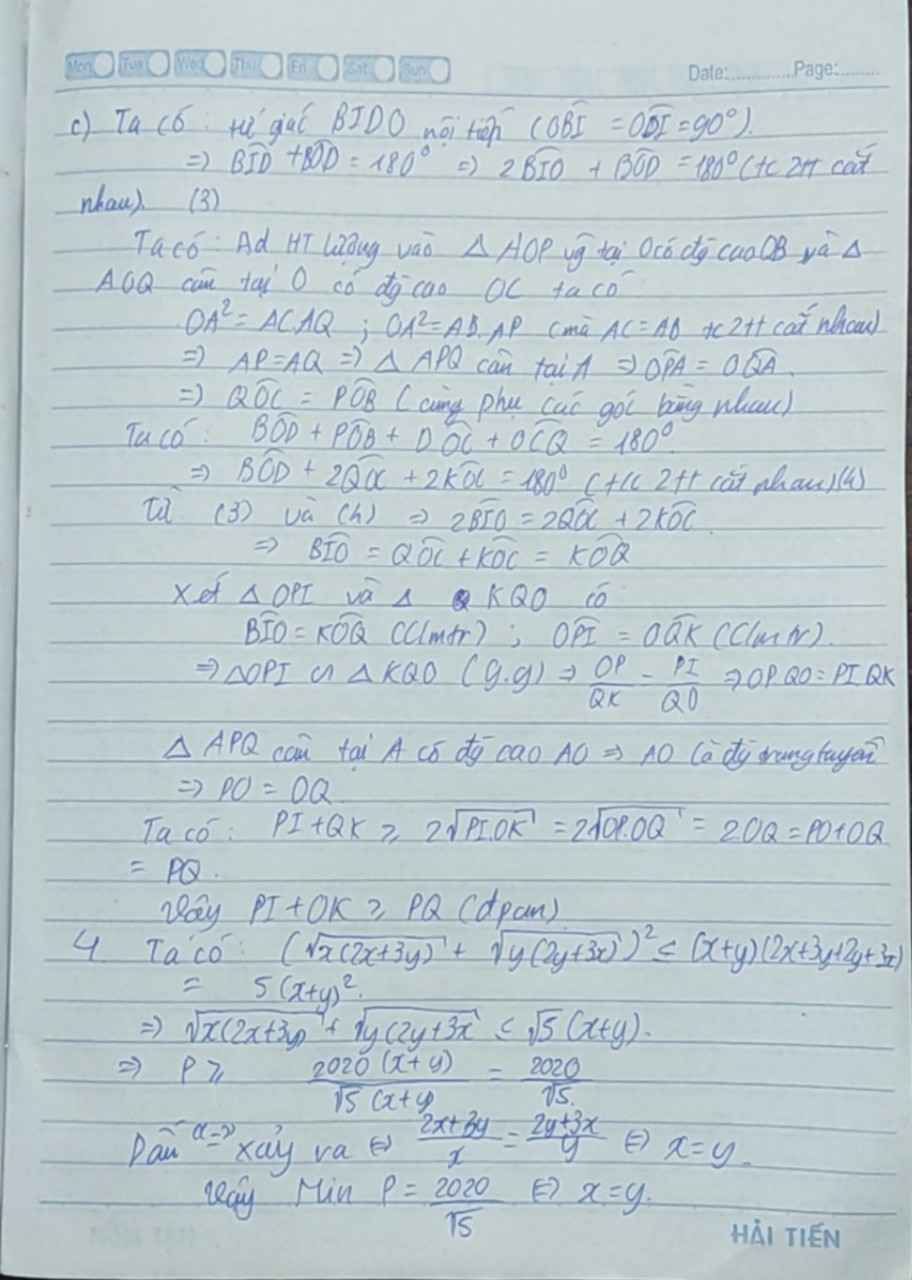 Mon Tue Wed Thu Fri Sat Sun Date:............Page:........
c) Ta có : tứ giác BIDO nội tiếp (OB̂I = OD̂I = 90°).
=> BÎD + BÔD = 180° => 2BÎO + BÔD = 180° (t/c 2tt cắt
nhau). (3)
Ta có : Ad HT lượng vào △ AOP vg tại O có đg cao OB và △
AOQ cân tại O có đg cao OC ta có
OA² = AC.AQ ; OA² = AB.AP (mà AC = AB t/c 2tt cắt nhau)
=> AP = AQ => △ APQ cân tại A => OP̂A = OQ̂A.
=> QÔC = PÔB (cùng phụ các góc bằng nhau)
Ta có : BÔD + PÔB + DÔC + OĈQ = 180°
=> BÔD + 2QÔC + 2KÔC = 180° (t/c 2tt cắt nhau)(4)
Từ (3) và (4) => 2BÎO = 2QÔC + 2KÔC
=> BÎO = QÔC + KÔC = KÔQ
Xét △ OPI và △ KQO có
BÎO = KÔQ (Clmtr) ; OP̂I = OQ̂K (Clmtr).
=> △OPI ∽ △ KQO (g.g) => OP/QK = PI/QO => OP.QO = PI.QK
△ APQ cân tại A có đg cao AO => AO là đg trung tuyến
=> PO = OQ
Ta có : PI + QK ≥ 2√PI.QK = 2√OP.OQ = 2OQ = PO + OQ
= PQ.
Vậy PI + QK ≥ PQ (đpcm)
4 Ta có : (√x(2x+3y) + √y(2y+3x))² ≤ (x+y)(2x+3y+2y+3x)
= 5(x+y)².
=> √x(2x+3y) + √y(2y+3x ≤ √5 (x+y).
=> P ≥ 2020(x+y)/√5(x+y) = 2020/√5.
Dấu "=" xảy ra <=> 2x+3y/x = 2y+3x/y <=> x = y.
Vậy Min P = 2020/√5 <=> x = y.
HẢI TIẾN